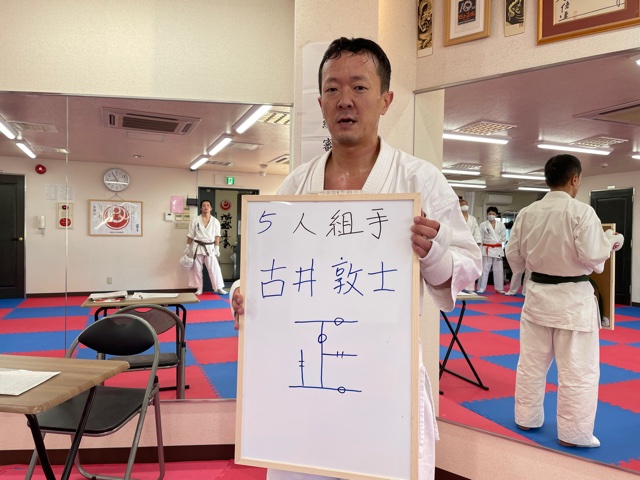 5人組手
古井敦士